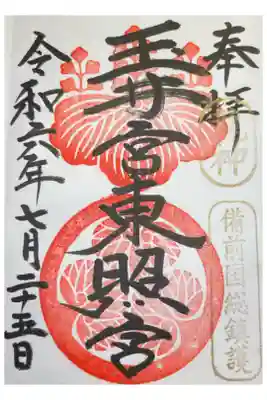 奉拝
玉井宮東照宮
備前国総鎮護
令和六年七月二十五日